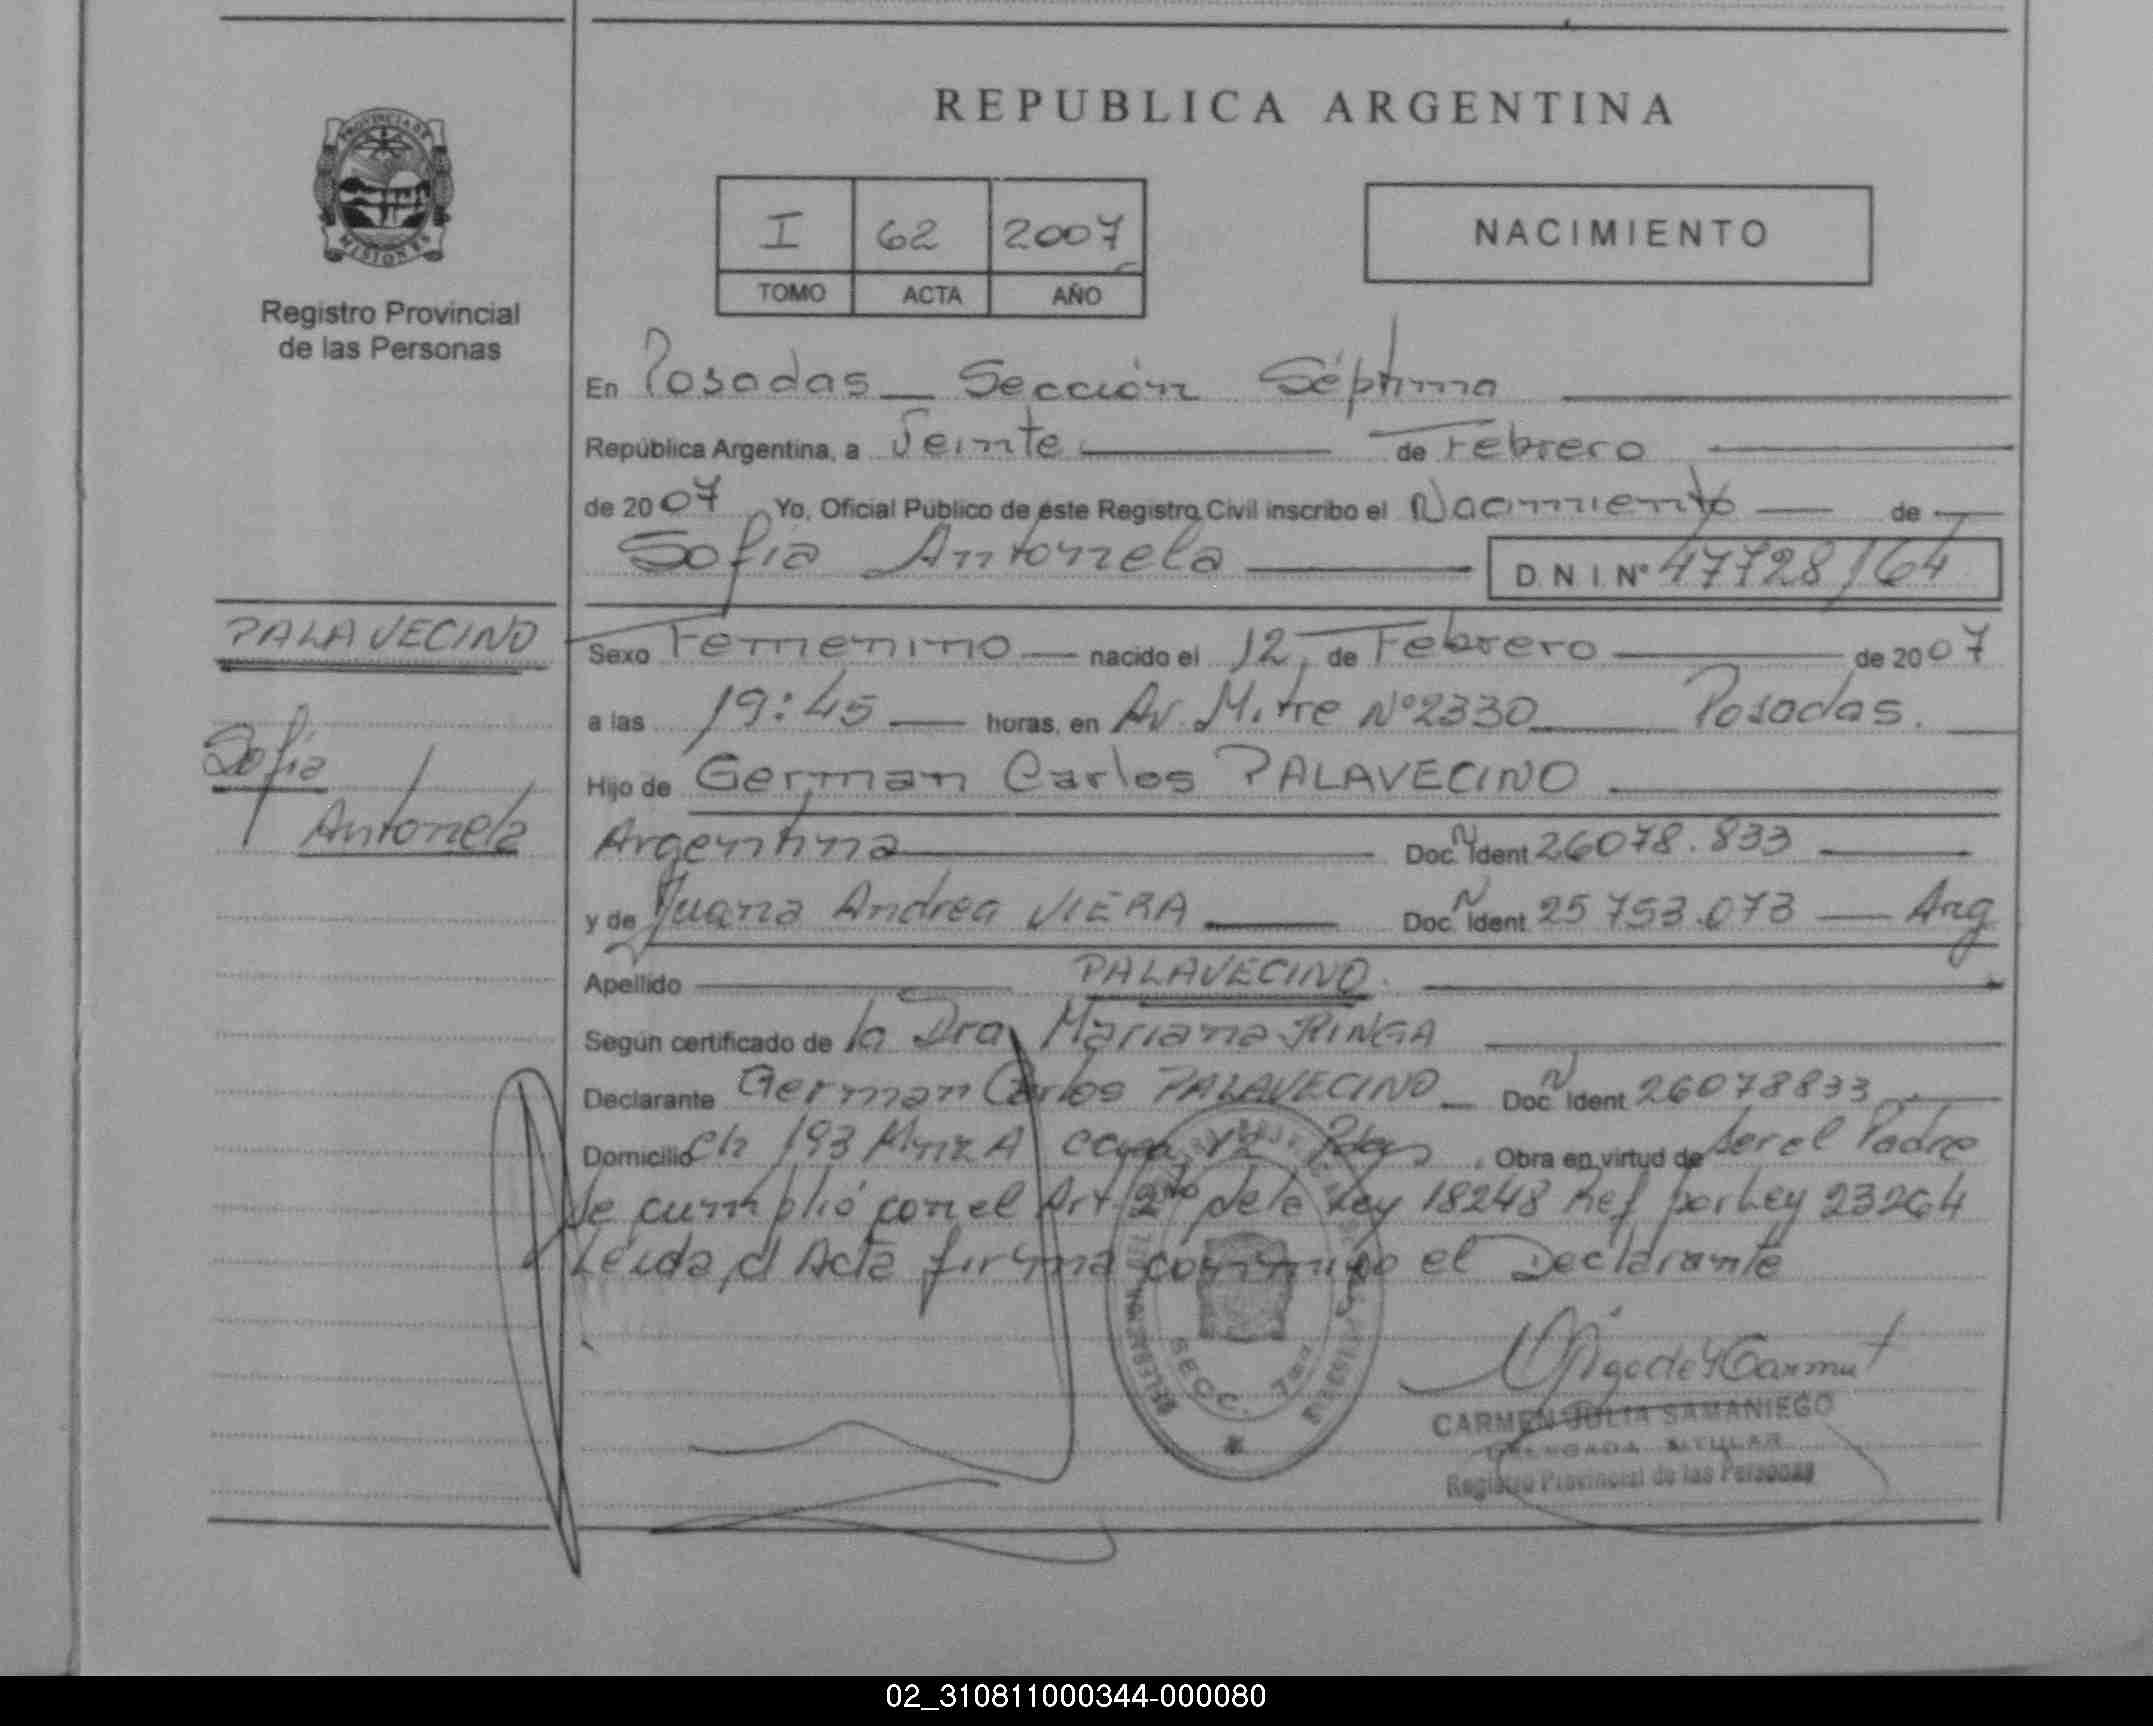 REPUBLICA ARGENTINA
PROVINCIA DE
MISIONES
Registro Provincial
de las Personas
I 62 2007
TOMO ACTA AÑO
NACIMIENTO
En Posadas _ Sección Séptima
República Argentina, a Veinte de Febrero
de 2007 Yo, Oficial Público de éste Registro Civil inscribo el Nacimiento de
Sofía Antonela D N I Nº 47728164
PALAVECINO
Sofía
Antonela
Sexo Femenino nacido el 12 de Febrero de 2007
a las 19:45 horas, en Av. Mitre Nº 2330 Posadas.
Hijo de German Carlos PALAVECINO
Argentina Doc. N Ident 26078.833
y de Juana Andrea VIERA Doc. N Ident. 25753.073 Arg
Apellido PALAVECINO.
Según certificado de la Dra Mariana RINGA
Declarante German Carlos PALAVECINO Doc N Ident 26078833
Domicilio Ch 193 Mnz A casa 12 Pdas. Obra en virtud de ser el Padre
Se cumplió con el Art. 2do de la Ley 18248 Ref por Ley 23264
Leida el Acta firma conmigo el Declarante
SECC. 7ma
CARMEN JULIA SAMANIEGO
DELEGADA TITULAR
Registro Provincial de las Personas
02_310811000344-000080